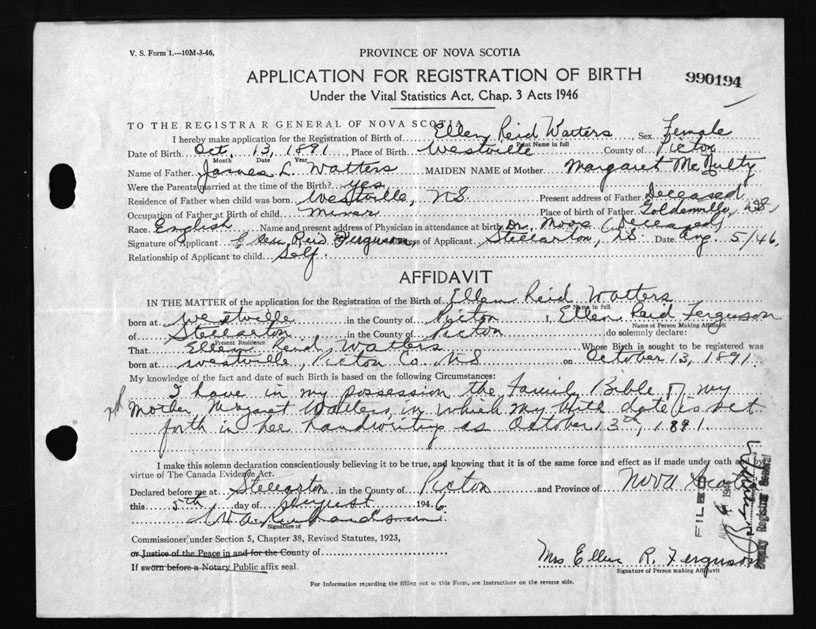 V. S. Form 1.—10M-3-46.
PROVINCE OF NOVA SCOTIA
APPLICATION FOR REGISTRATION OF BIRTH
990194
Under the Vital Statistics Act, Chap. 3 Acts 1946
TO THE REGISTRAR GENERAL OF NOVA SCOTIA
I hereby make application for the Registration of Birth of Ellen Reid Watters, Sex Female
Print Name in full
Date of Birth Oct. 13, 1891 Place of Birth Westville County of Picton
Month Date Year
Name of Father James L. Watters MAIDEN NAME of Mother Margaret McNulty
Were the Parents married at the time of the Birth? yes
Residence of Father when child was born Westville, N.S. Present address of Father Deceased
Occupation of Father at Birth of child Miner Place of birth of Father Goldenville, N.S.
Race English Name and present address of Physician in attendance at birth Dr. Moore (Deceased)
Signature of Applicant Ellen Reid Ferguson Address of Applicant Stellarton, N.S. Date Aug 5/46
Relationship of Applicant to child Self
AFFIDAVIT
IN THE MATTER of the application for the Registration of the Birth of Ellen Reid Watters
Name in full
born at Westville in the County of Picton I, Ellen Reid Ferguson
Name of Person Making Affidavit
of Stellarton in the County of Picton do solemnly declare:
Present Residence
That Ellen Reid Watters Whose Birth is sought to be registered was
born at Westville, Picton Co. N.S. on October 13, 1891.
My knowledge of the fact and date of such Birth is based on the following Circumstances:
I have in my possession the family Bible of my
Mother, Margaret Watters, in which my birth date is set
forth in her handwriting as October 13th, 1891
I make this solemn declaration conscientiously believing it to be true, and knowing that it is of the same force and effect as if made under oath and by
virtue of The Canada Evidence Act.
Declared before me at Stellarton in the County of Picton and Province of Nova Scotia
this 5th day of August 1946
Signature of
Commissioner under Section 5, Chapter 38, Revised Statutes, 1923,
or Justice of the Peace in and for the County of
If sworn before a Notary Public affix seal.
Mrs Ellen R. Ferguson
Signature of Person making Affidavit
FILED
Deputy Registrar General
For Information regarding the filling out of this Form, see Instructions on the reverse side.